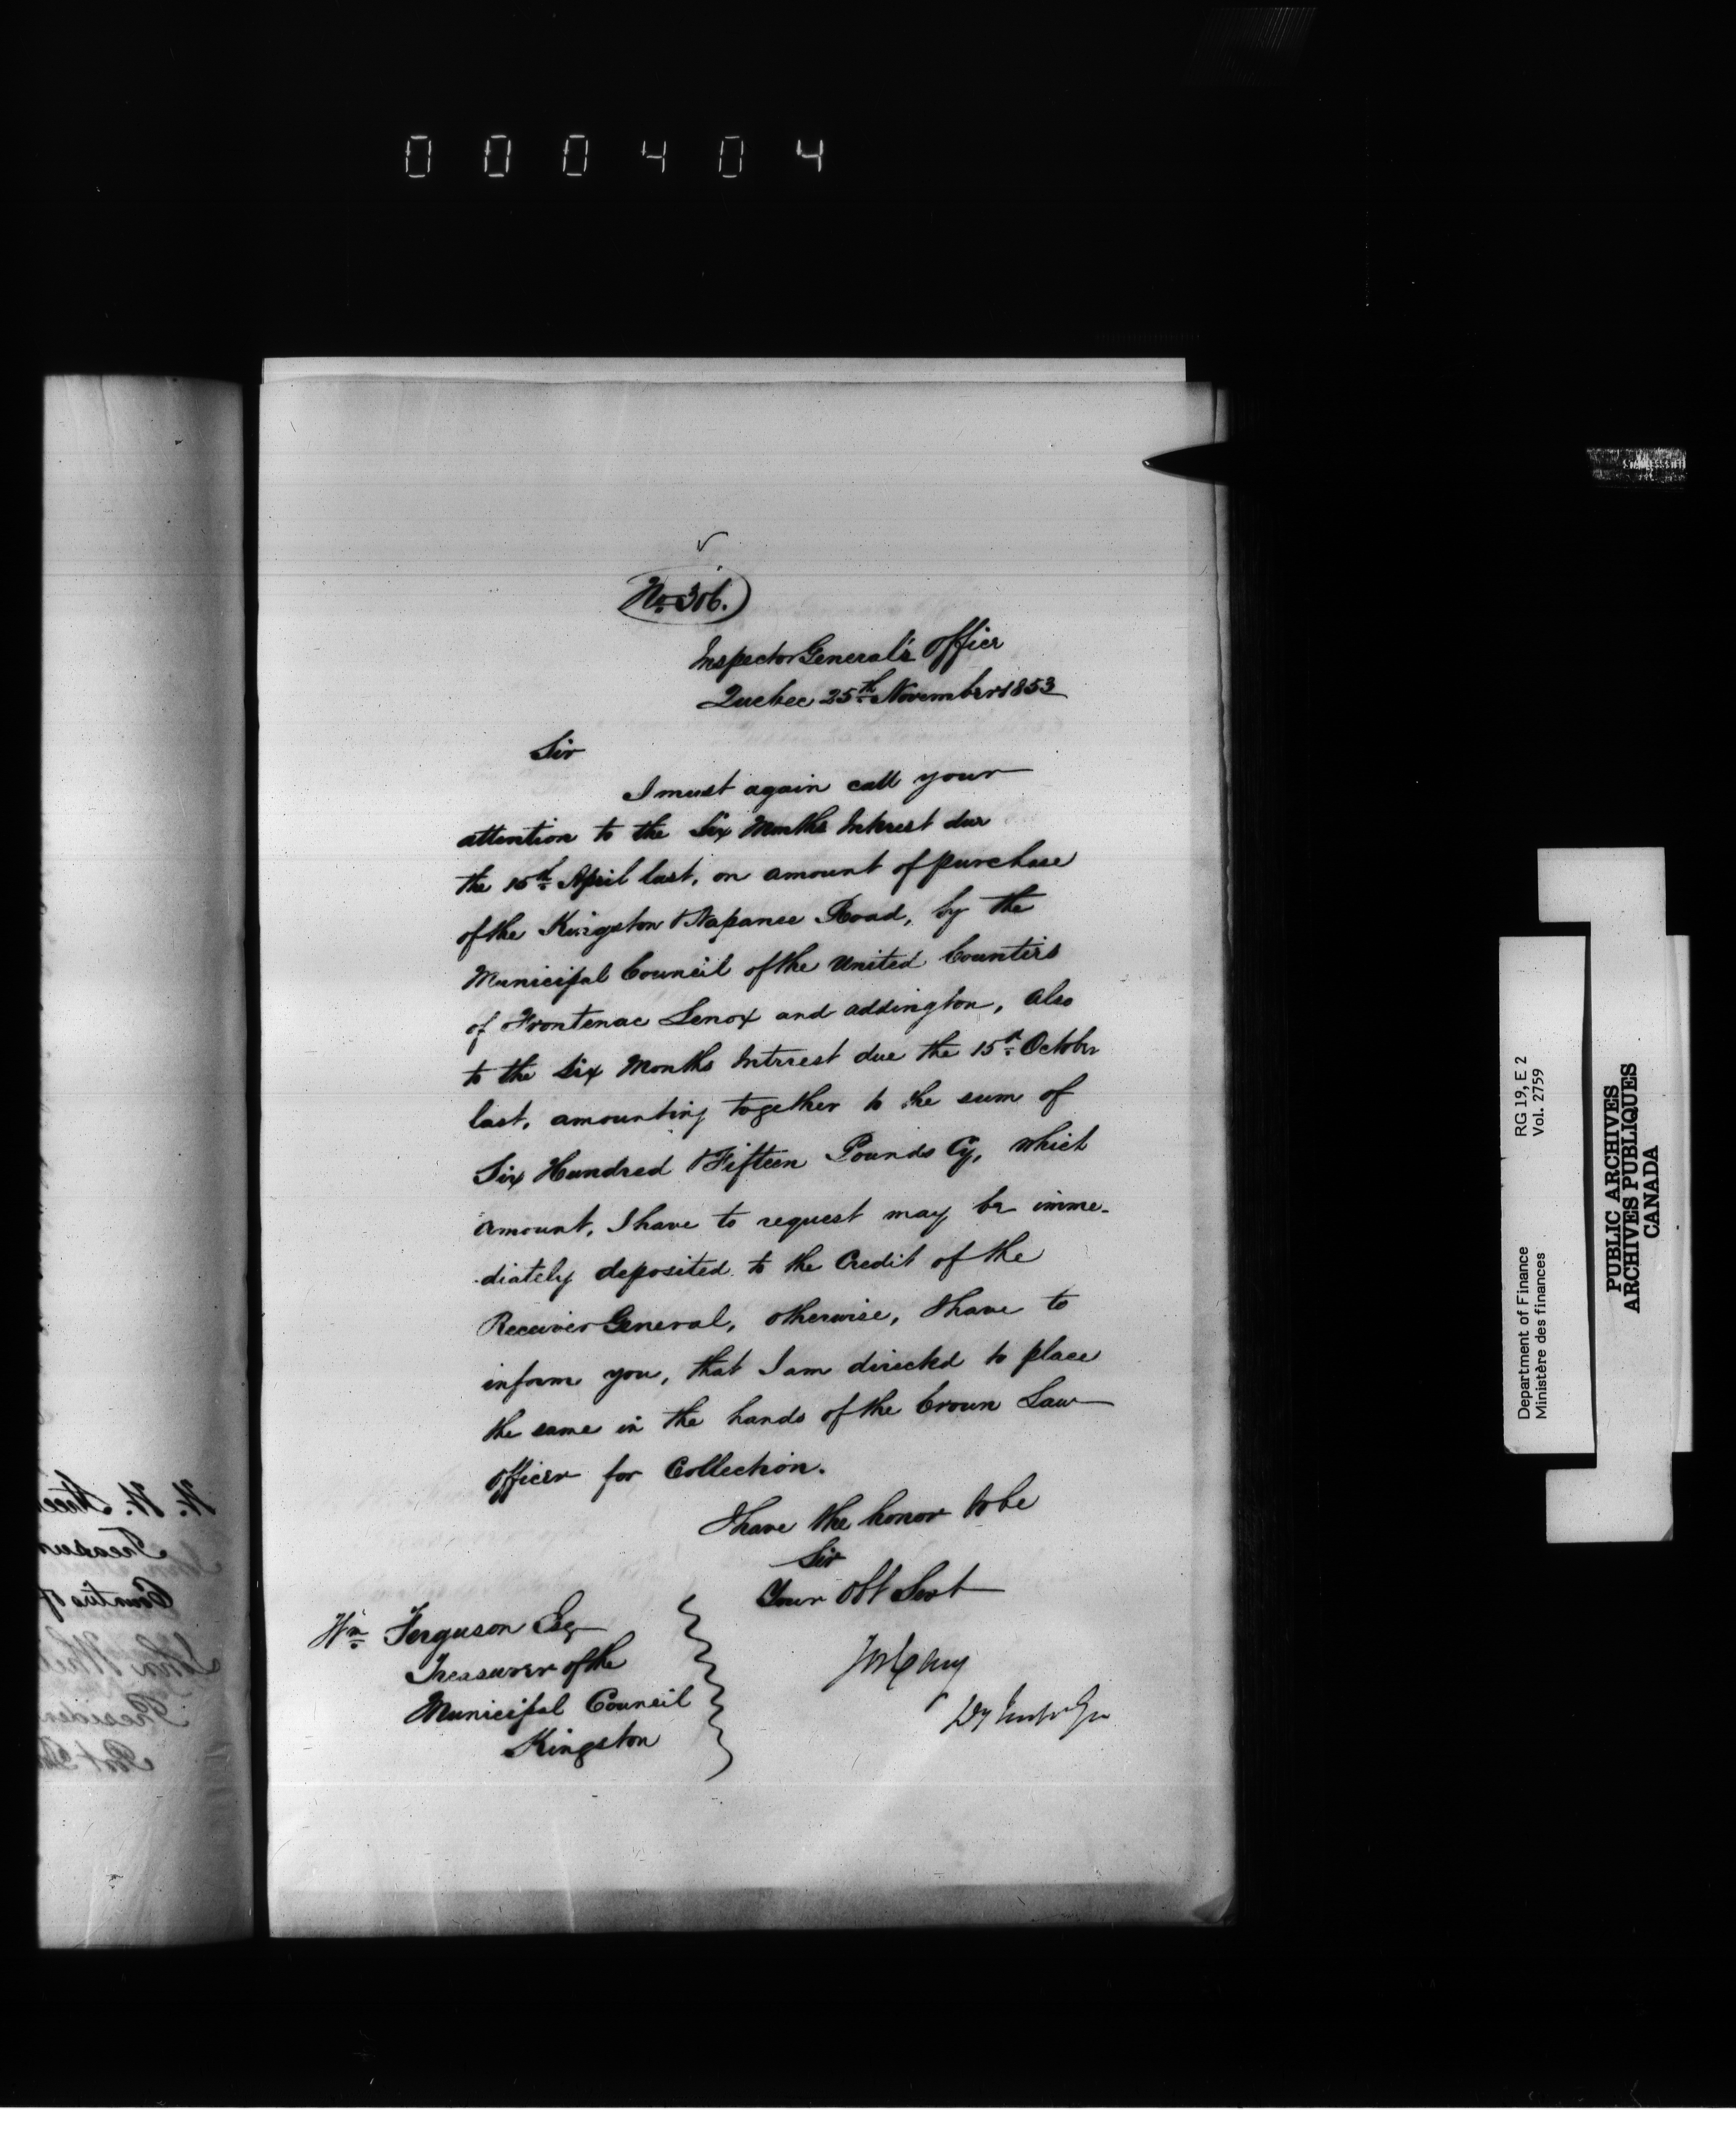 000404
No 306.
Inspector General's Office
Quebec 25th November 1853
Sir
I must again call your
attention to the Six Months Interest due
the 15th April last, on amount of purchase
of the Kingston & Napanee Road, by the
Municipal Council of the United Counties
of Frontenac Lenox and Addington, also
to the Six Months Interest due the 15th October
last, amounting together to the sum of
Six Hundred & Fifteen Pounds Cy, which
amount, I have to request may be imme-
-diately deposited to the Credit of the
Receiver General, otherwise, I have to
inform you, that I am directed to place
the same in the hands of the Crown Law
Officer for Collection.
I have the honor to be
Sir
Your Obt Servt
Jos Cary
Dy Inspr Gen
Wm Ferguson Esq
Treasurer of the
Municipal Council
Kingston
Department of Finance RG 19, E 2
Ministère des finances Vol. 2759
PUBLIC ARCHIVES
ARCHIVES PUBLIQUES
CANADA